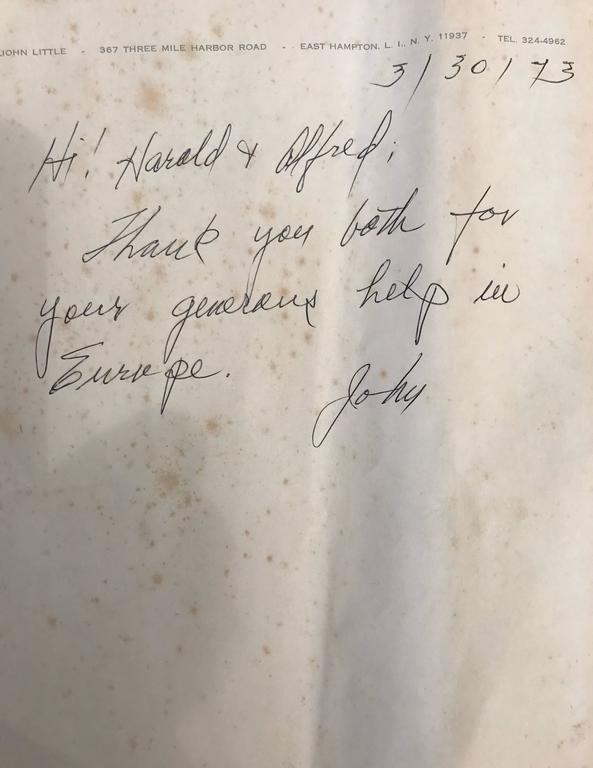 JOHN LITTLE - 367 THREE MILE HARBOR ROAD - EAST HAMPTON, L. I., N. Y. 11937 - TEL. 324-4962
3/30/73
Hi! Harold & Alfred;
Thank you both for
your generous help in
Europe.
John